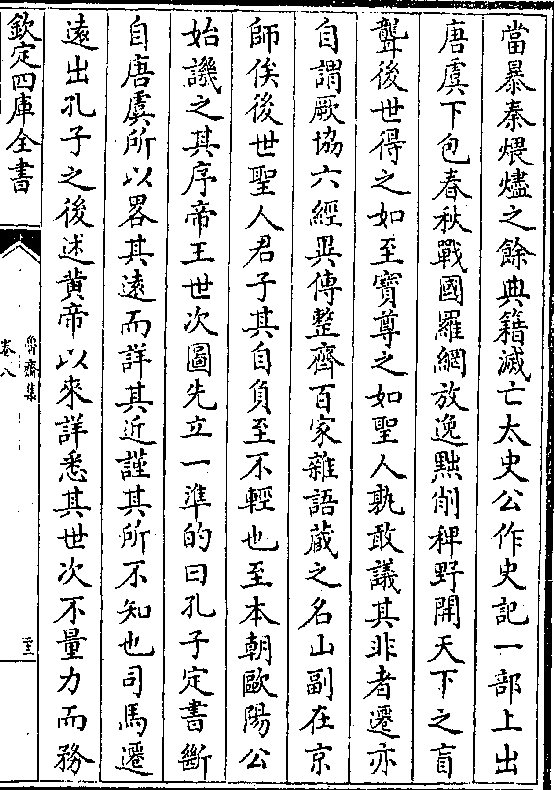 當暴秦煨燼之餘典籍滅亡太史公作史記一部上出
唐虞下包春秋戰國羅網放逸㸃削稗野開天下之盲
聾後世得之如至寶尊之如聖人孰敢議其非者遷亦
自謂厥協六經異傳整齊百家雜語藏之名山副在京
師俟後世聖人君子其自負至不輕也至本朝歐陽公
始譏之其序帝王世次圖先立一準的曰孔子定書斷
自唐虞所以畧其遠而詳其近謹其所不知也司馬遷
遠出孔子之後述黃帝以來詳悉其世次不量力而務
欽定四庫全書
魯齋集
卷八